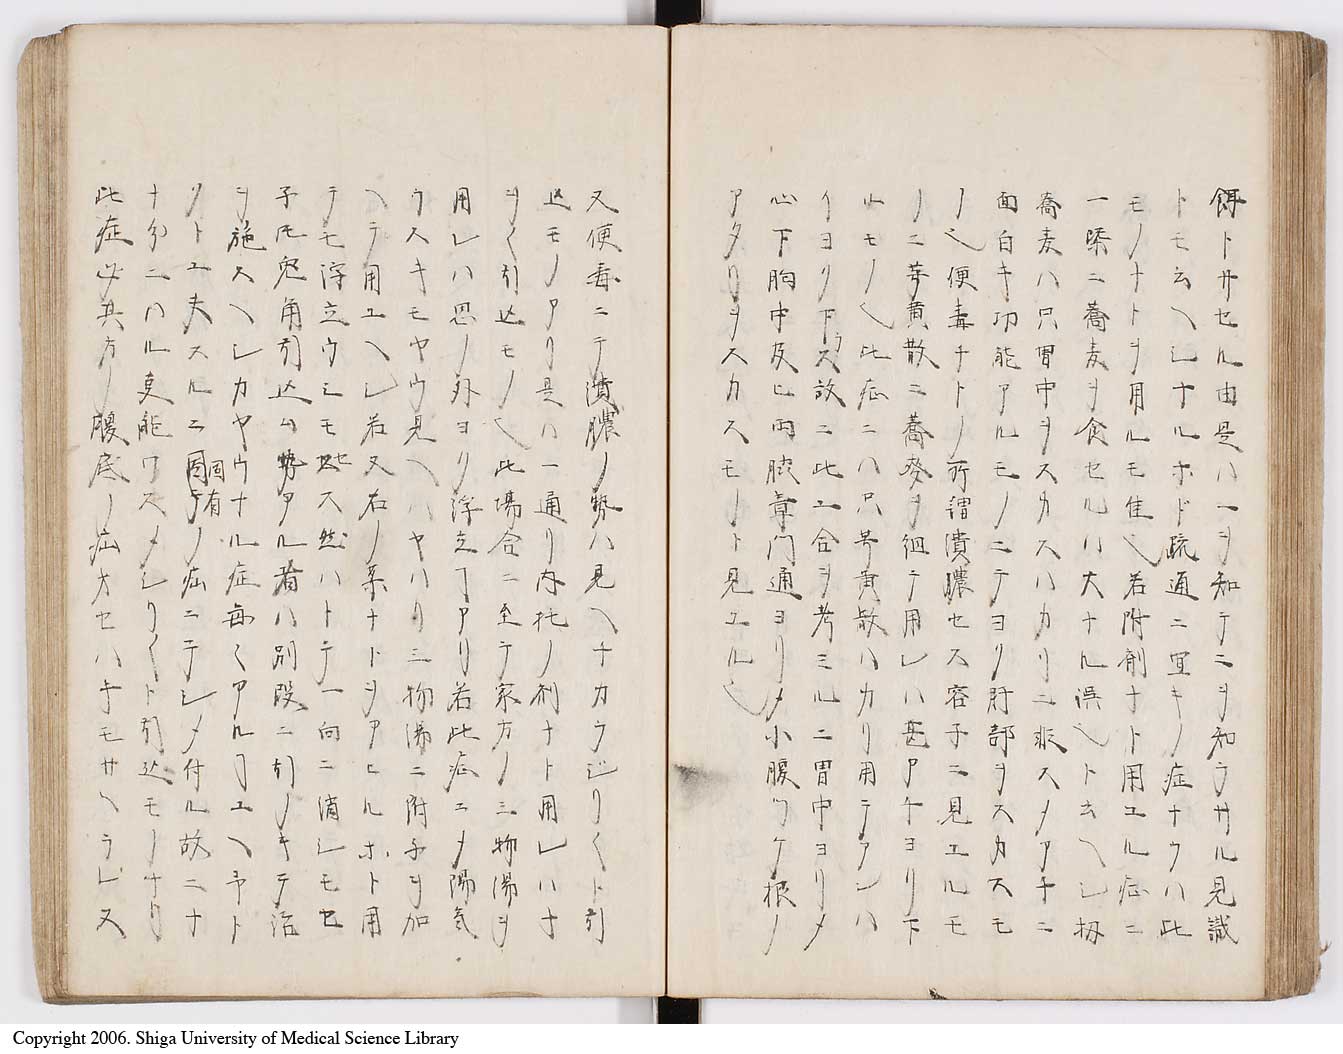 餌トサセル由是ハ一ヲ知テニヲ知ラサル見識
トモ云ヘシナルホド疏通ニ宜キノ症ナラハ此
モノナトヲ用ルモ佳也若附剤ナト用ユル症ニ
一槩ニ蕎麦ヲ食セルハ大ナル誤也ト云ヘシ扨
蕎麦ハ只胃中ヲスカスハカリニ非スメアチニ
面白キ功能アルモノニテヨリ肝部ヲスカスモ
ノ也便毒ナトノ所謂潰膿セス容子ニ見ユルモ
ノニ芎黄散ニ蕎麥ヲ徊テ用レハ甚アチヨリ下
ルモノ也此症ニハ只芎黄散ハカリ用テアシハ
イヨリ下ラス故ニ此工合ヲ考ミルニ胃中ヨリメ
心下胸中及ヒ両脇章門通ヨリメ小腹ツケ根ノ
アタリヲスカスモノト見ユル也
又便毒ニテ潰膿ノ勢ハ見ヘナカラジリ〱ト引
込モノアリ是ハ一通リ内托ノ剤ナト用レハナ
ヲ〱引込モノ也此場合ニ至テ家方ノ三物湯ヲ
用レハ思ノ外ヨリ浮立ヿアリ若此症ニメ陽気
ウスキモヤウ見ヘハヤハリ三物湯ニ附子ヲ加
ヘテ用ユヘシ若又右ノ薬ナドヲアヒルホト用
テモ浮立ウシモセス然ハトテ一向ニ消シモセ
子𪜈兎角引込ム勢アル者ハ別段ニ引ノキテ治
ヲ施スヘシカヤウナル症毎〱アルヿユヘ予ト
クト工夫スルニ固有ノ疝ニテシメ付ル故ニナ
ナ分ニハル吏能ワスメシリ〱ト引込モノナリ
此症必其方ノ腹底ノ疝オセハ手モサヘラレス